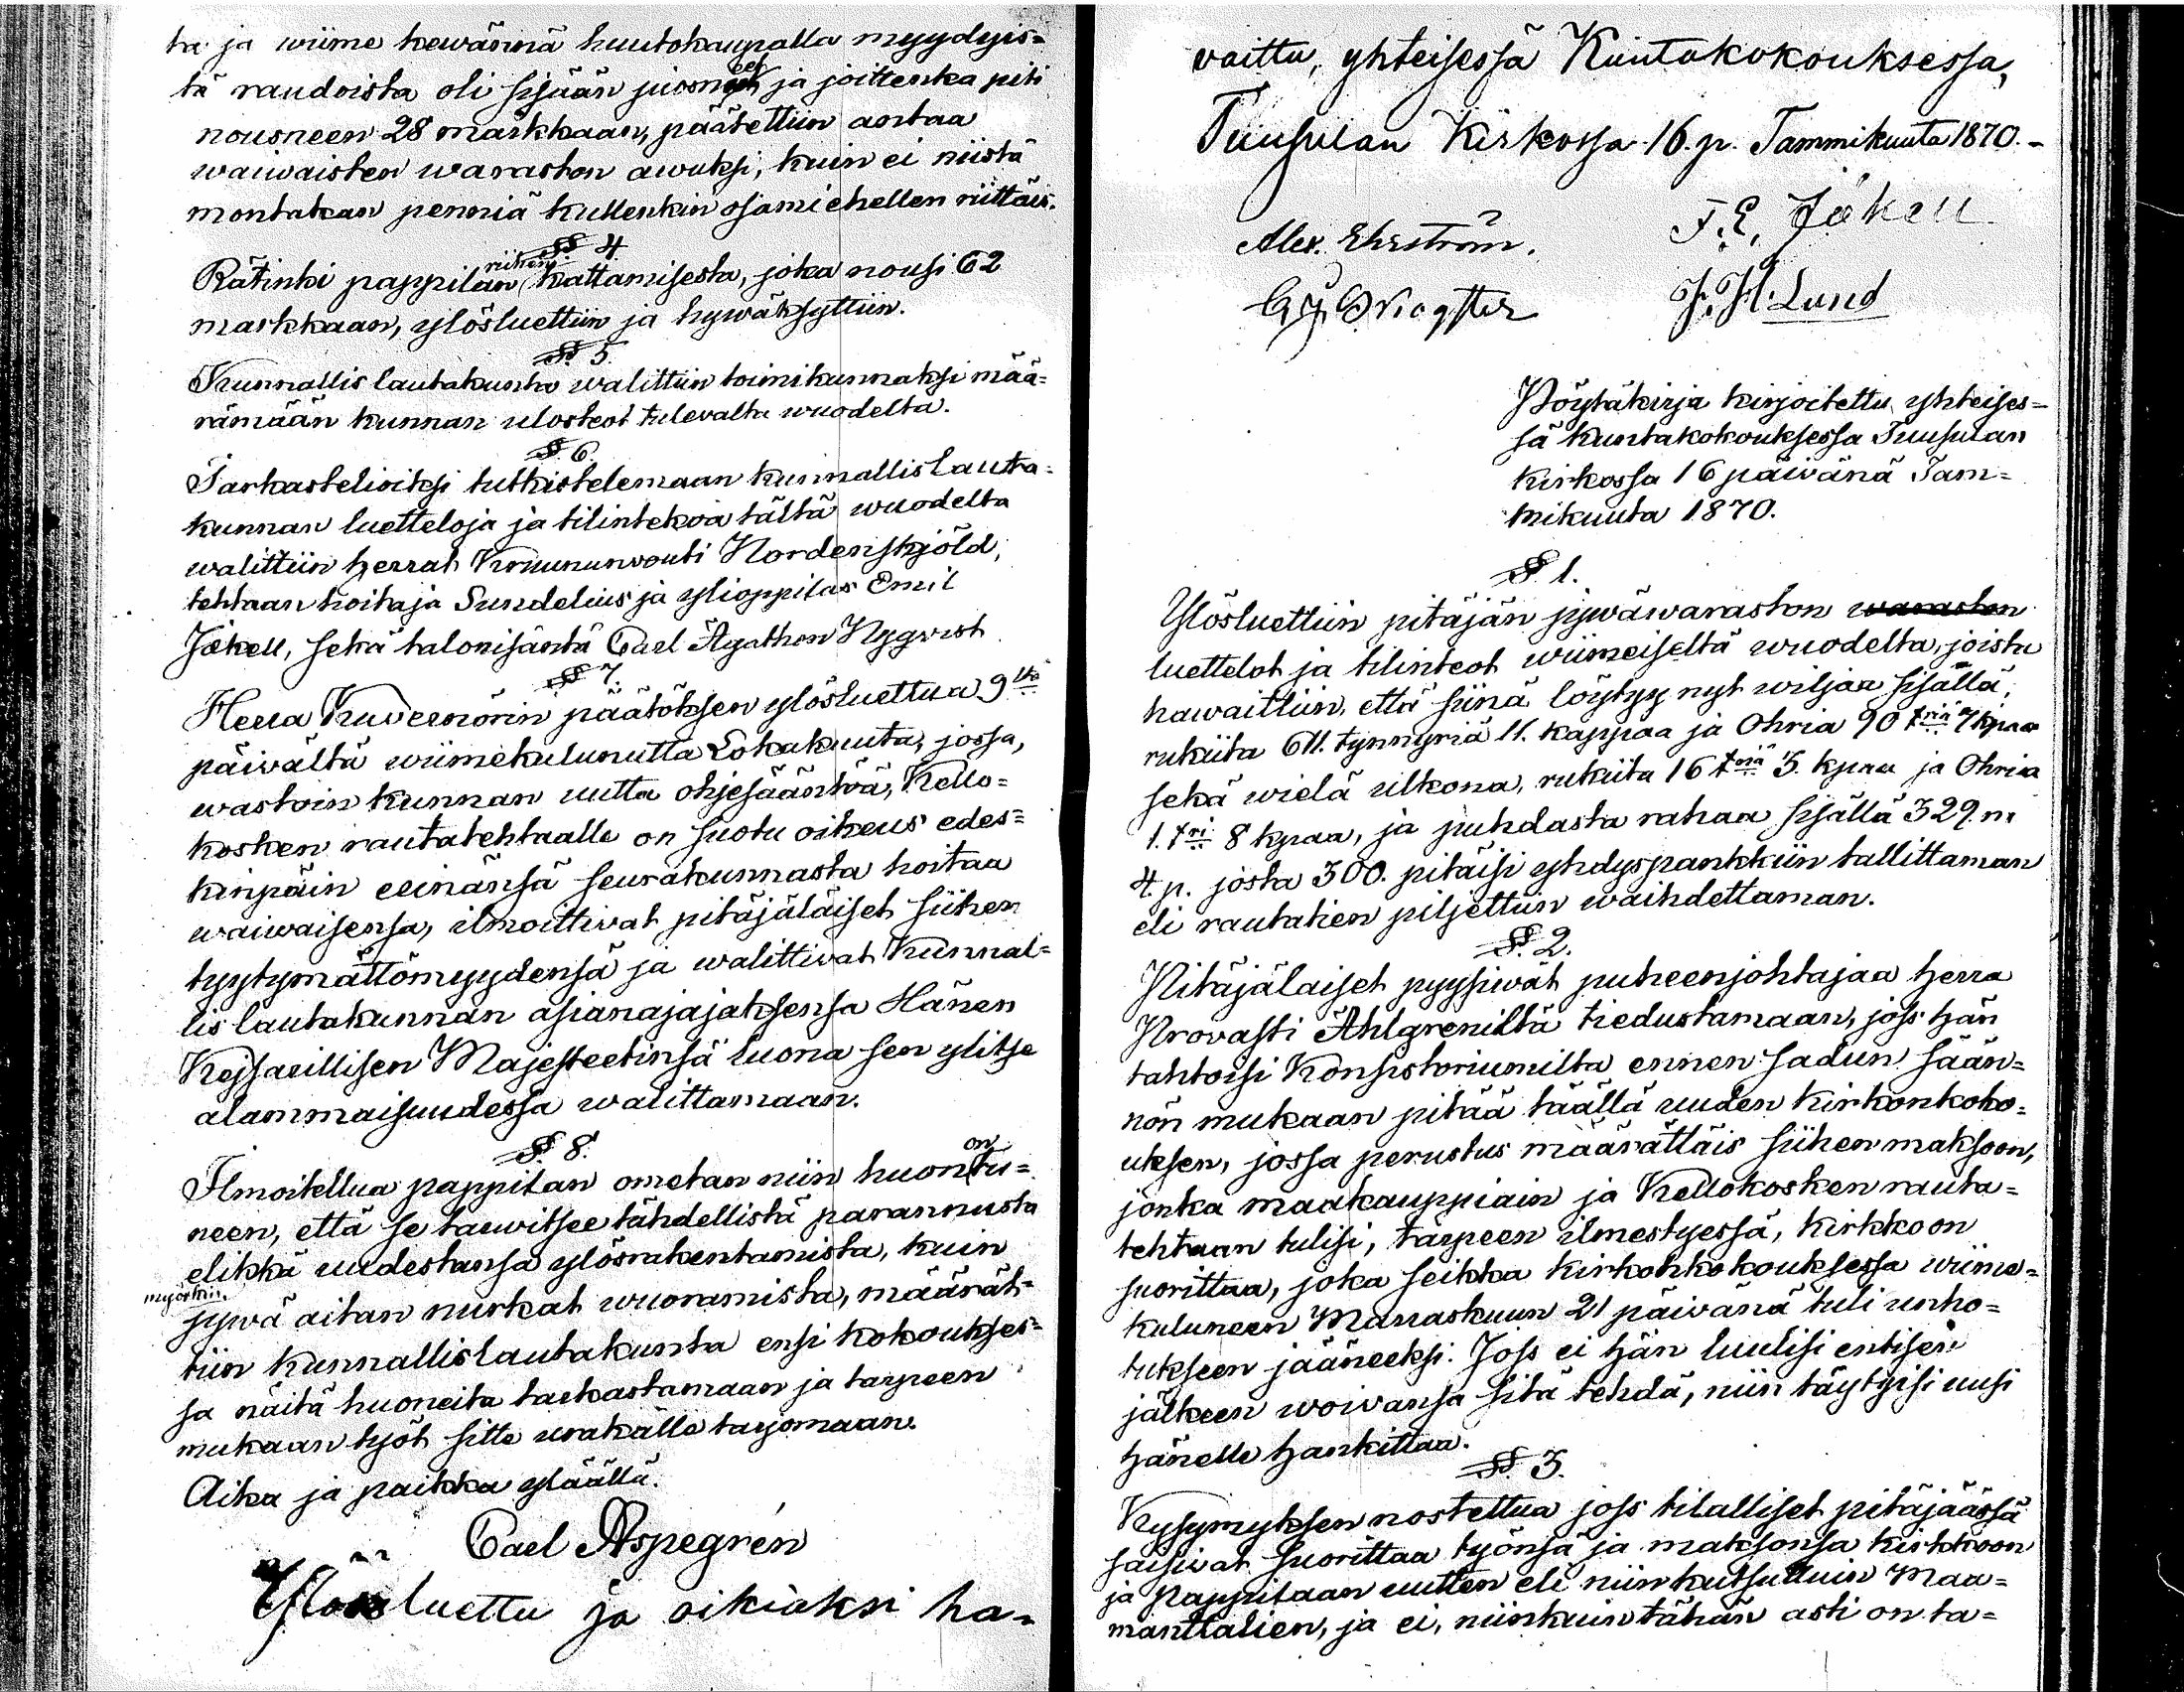 ta ja wiime kewännä huutokaupalla myydyis=
tä raudoista oli sisään juosneet ja joittenka piti
nousneen 28 markkaan, päätettiin antaa
waiwaisten waraston awuksi, kuin ei niistä
montakaan penniä kullenkin osamiehellen riittäis.
§ 4.
Rätinki pappilan riihen kattamisesta, joka nousi 62
markkaan, ylösluettiin ja hywäksyttiin.
§ 5.
Kunnallis lautakunta walittiin toimikunnaksi mää=
rämään kunnan ulosteot tulevalta wuodelta.
§ 6.
Tarkastelioiksi tutkistelemaan kunnallislauta=
kunnan luetteloja ja tilintekoa tältä wuodelta
walittiin herrat Kruununwouti Nordenskjöld,
tehtaan hoitaja Sundelius ja ylioppilas Emil
Jäkell, sekä talonisäntä Carl Agathon Nygvist.
§ 7.
Herra Kuvernörin päätöksen ylösluettua 9ltä
päiwältä wiimekulunutta Lokakuuta, jossa,
wastoin kunnan uutta ohjesääntöä, Kello=
kosken rautatehtaalle on suotu oikeus edes=
kinpäin eeinänsä seurakunnasta hoitaa
waiwaisensa, ilmoittivat pitäjäläiset siihen
tyytymättömyydensä ja walittivat Kunnal=
lis lautakunnan asianajajaksensa Hänen
Keisarillisen Majesteetinsä luona sen ylitse
alammaisuudessa walittamaan.
§ 8.
Ilmoitellua pappilan ometan niin huonon tu=
neen, että se tarwitsee tähdellistä parannusta
elikkä uudestansa ylösrakentamista, kuin
myöskin jywä aitan nurkat wuoramista, määrät=
tiin kunnallislautakunta ensi kokoukses=
sa näitä huoneita tarkastamaan ja tarpeen
mukaan työt sitte urakalle tarjomaan.
Aika ja paikka yläällä.
Carl Aspegrén
Ylösluettu ja oikiaksi ha=
vaittu, yhteisessä Kuntakokouksessa,
Tuusulan Kirkossa 16. p. Tammikuuta 1870.-
Alex. Ehrström.
F. E. Jäkell
F. H. Lund
Pöytäkirja kirjoitettu yhteises=
sä kuntakokouksessa Tuusulan
kirkossa 16 päiwänä Tam=
mikuuta 1870.
§ 1.
Ylösluettiin pitäjän jywäwaraston waraston
luettelot ja tilinteot wiimeiseltä wuodelta, joista
hawaittiin, että siinä löytyy nyt wiljaa sisällä,
rukiita 611. tynnyriä 11. kappaa ja Ohria 90 triä 7 kpaa
sekä wielä ulkona, rukiita 16 triä 5. kpaa ja Ohria
1. tri 8 kpaa, ja puhdasta rahaa sisällä 329. m
4 p. josta 300. pitäisi yhdyspankkiin tallittaman
eli rautatien piljettiin waihdettaman.
§ 2.
Pitäjäläiset pyysiwät puheenjohtajaa herra
Provasti Ahlgreniltä tiedustamaan, joss hän
tahtoisi Konsistoriumilta ennen sadun sään=
nön mukaan pitää täällä uuden kirkonkoko=
uksen, jossa perustus määrättäis siihen maksoon,
jonka maakauppiain ja Kellokosken rauta=
tehtaan tulisi, tarpeen ilmestyessä, kirkkoon
suorittaa, joka seikka kirkonkokouksessa wiime=
kuluneen Marraskuun 21 päivänä tuli unho=
tukseen jääneeksi. Joss ei hän luulisi entisen
jälkeen woivansa sitä tehdä, niin täytyisi uusi
hänelle hankittaa.
§ 3.
Kysymyksen nostettua joss tilalliset pitäjäässä
saisivat suorittaa työnsä ja maksonsa kirkkoon
ja Pappilaan uutten eli niinkutsuttuin Maa=
manttalien, ja ei, niinkuin tähän asti on ta=